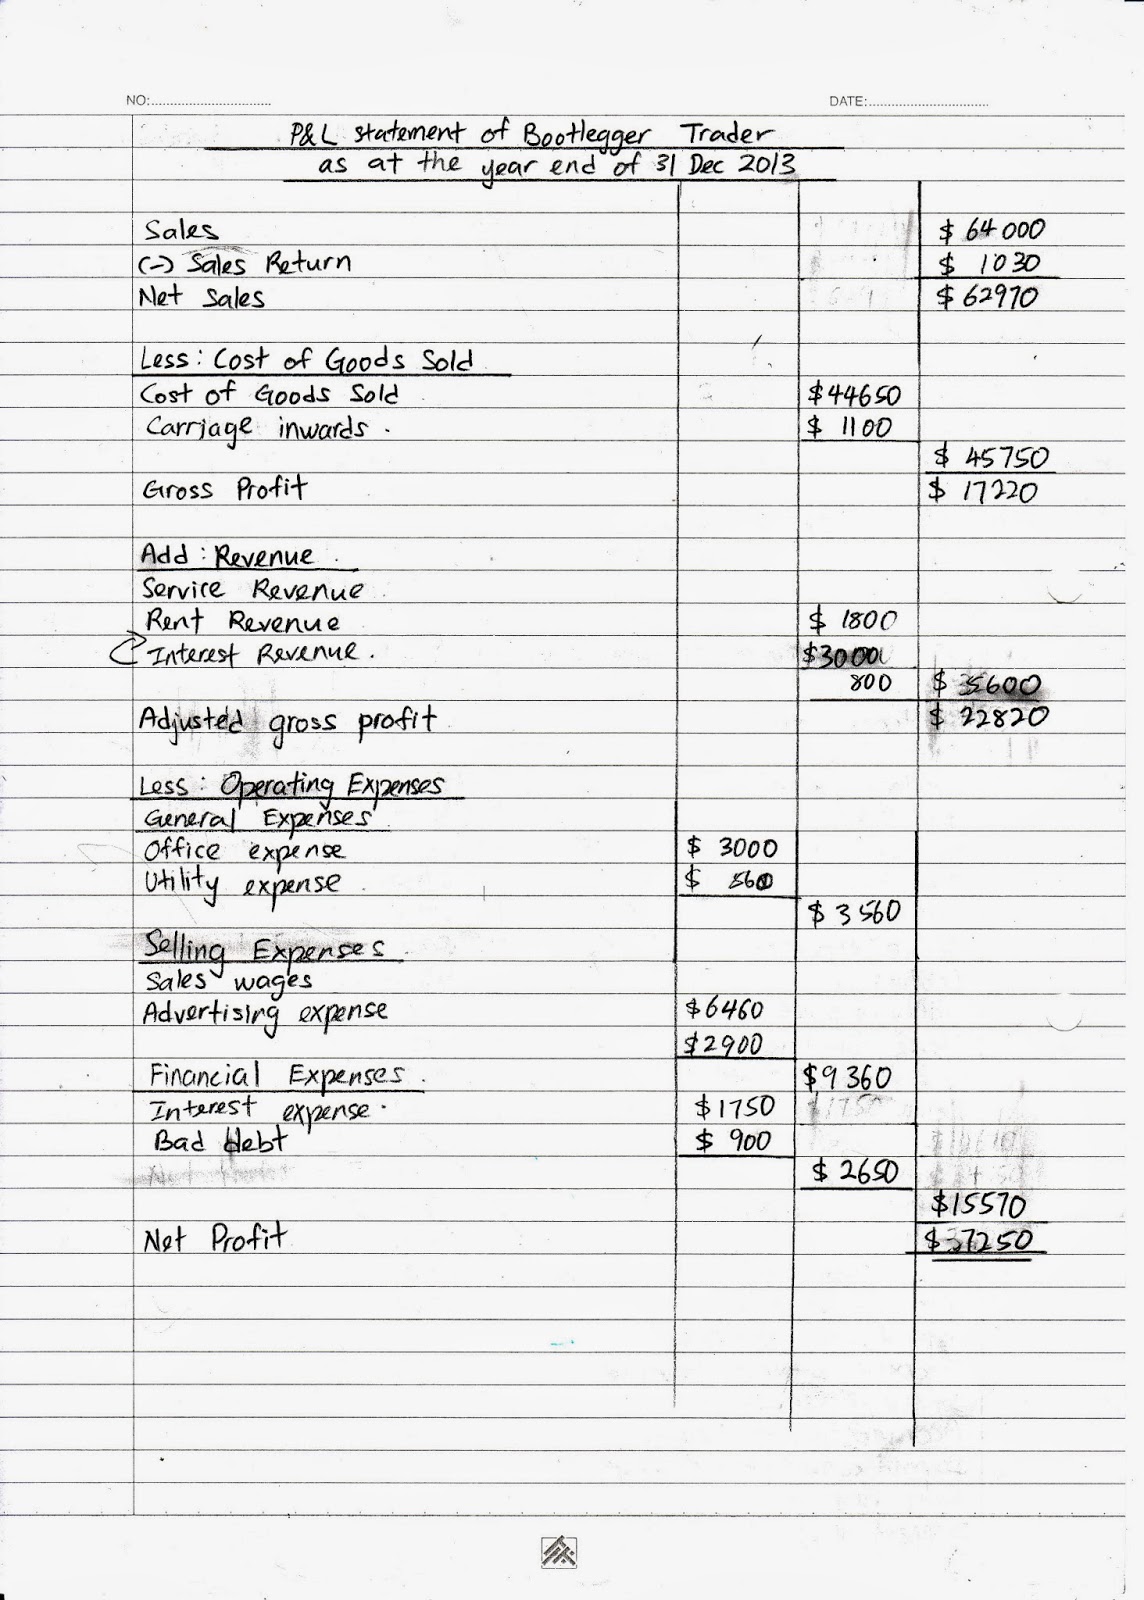 NO:
DATE:
P&L statement of Bootlegger Trader
as at the year end of 31 Dec 2013
Sales $ 64000
(-) Sales Return $ 1030
Net Sales $ 62970
Less : Cost of Goods Sold
Cost of Goods Sold $44650
Carriage inwards. $ 1100
$ 45750
Gross Profit $ 17220
Add : Revenue
Service Revenue
Rent Revenue $ 1800
Interest Revenue. $3000
800 $ 5600
Adjusted gross profit $ 22820
Less : Operating Expenses
General Expenses
Office expense $ 3000
Utility expense $ 560
$ 3560
Selling Expenses
Sales wages
Advertising expense $6460
$2900
Financial Expenses. $9360
Interest expense. $1750
Bad debt $ 900
$ 2650
$15570
Net Profit $37250